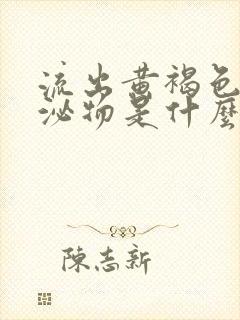 流出黄褐色
泌物是什麼
陳志新